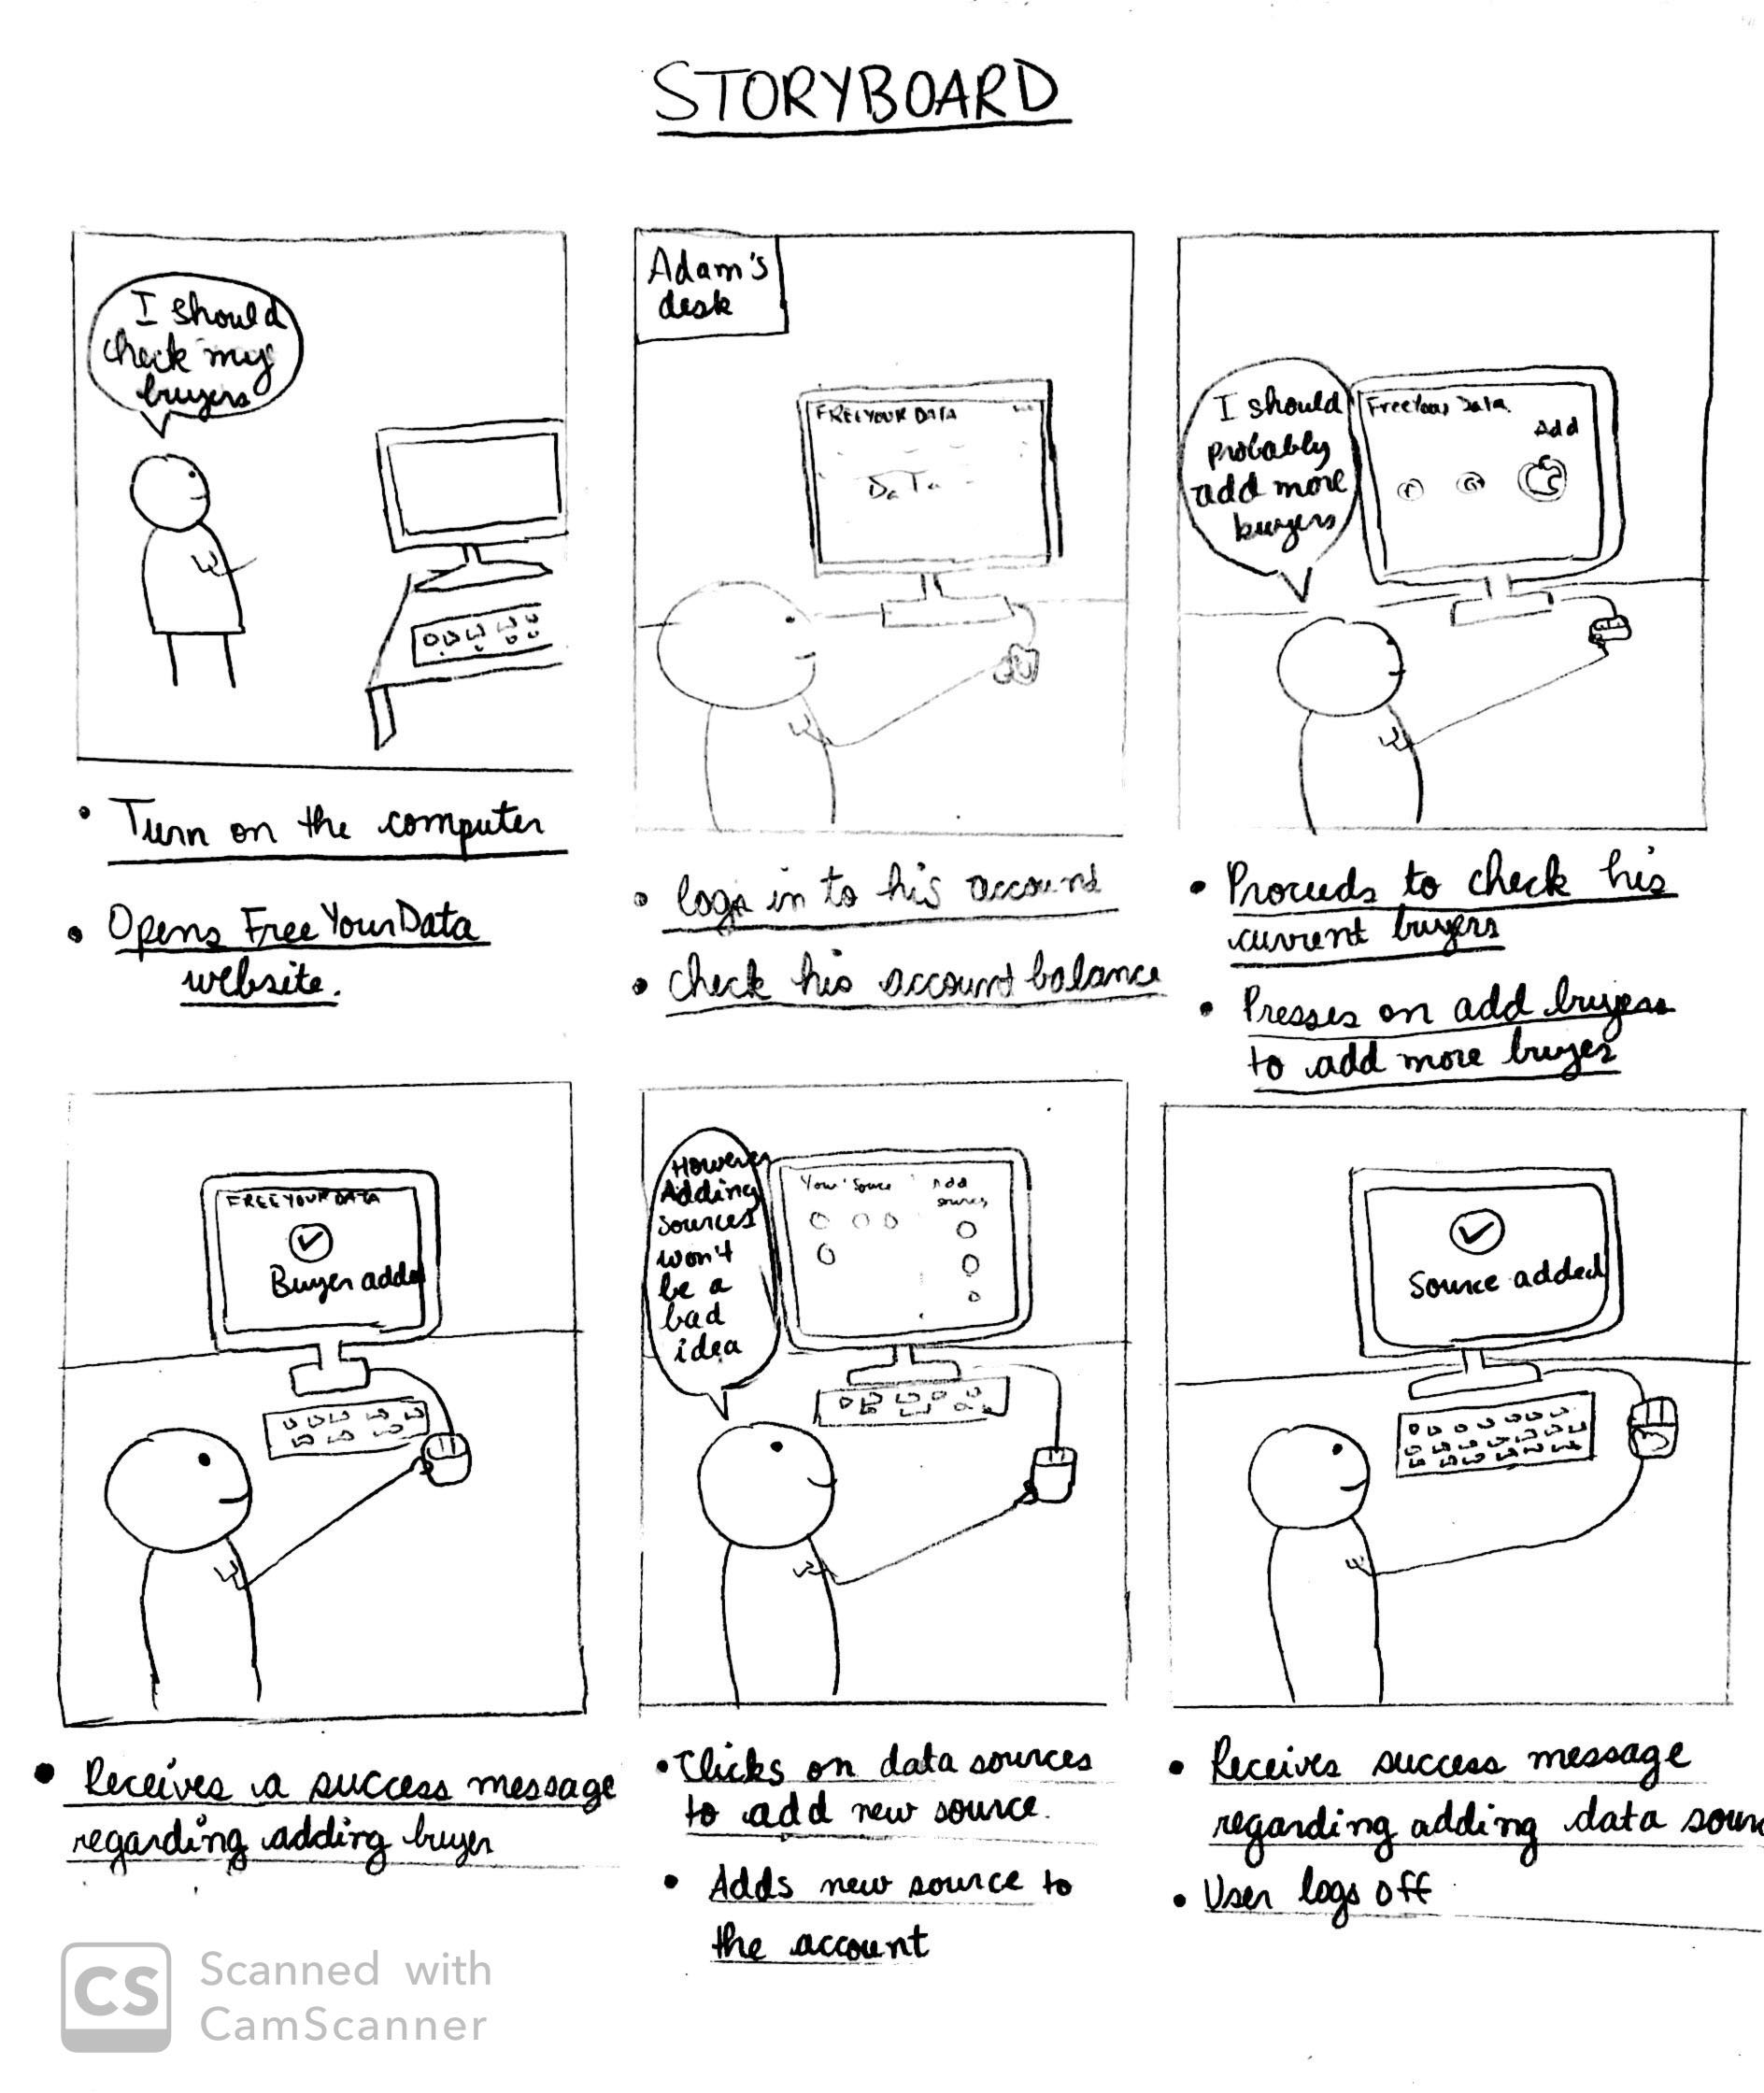 STORYBOARD
I should
check my
buyers
• Turn on the computer
• Opens FreeYourData
website.
Adam's
desk
FREEYOUR DATA
DaTa
• logs in to his account
• check his account balance
I should
probably
add more
buyers
FreeYour Data
Add
• Proceeds to check his
current buyers
• Presses on add buyers
to add more buyer
FREEYOUR DATA
Buyer added
• Receives a success message
regarding adding buyer
However
Adding
sources
won't
be a
bad
idea
Your Source
Add
sources
• Clicks on data sources
to add new source.
• Adds new source to
the account
Source added
• Receives success message
regarding adding data sourc
• User logs off
CS
Scanned with
CamScanner